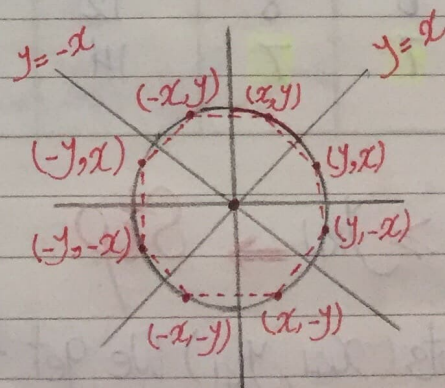 y=-x
y=x
(-x,y)
(x,y)
(-y,x)
(y,x)
(-y,-x)
(y,-x)
(-x,-y)
(x,-y)